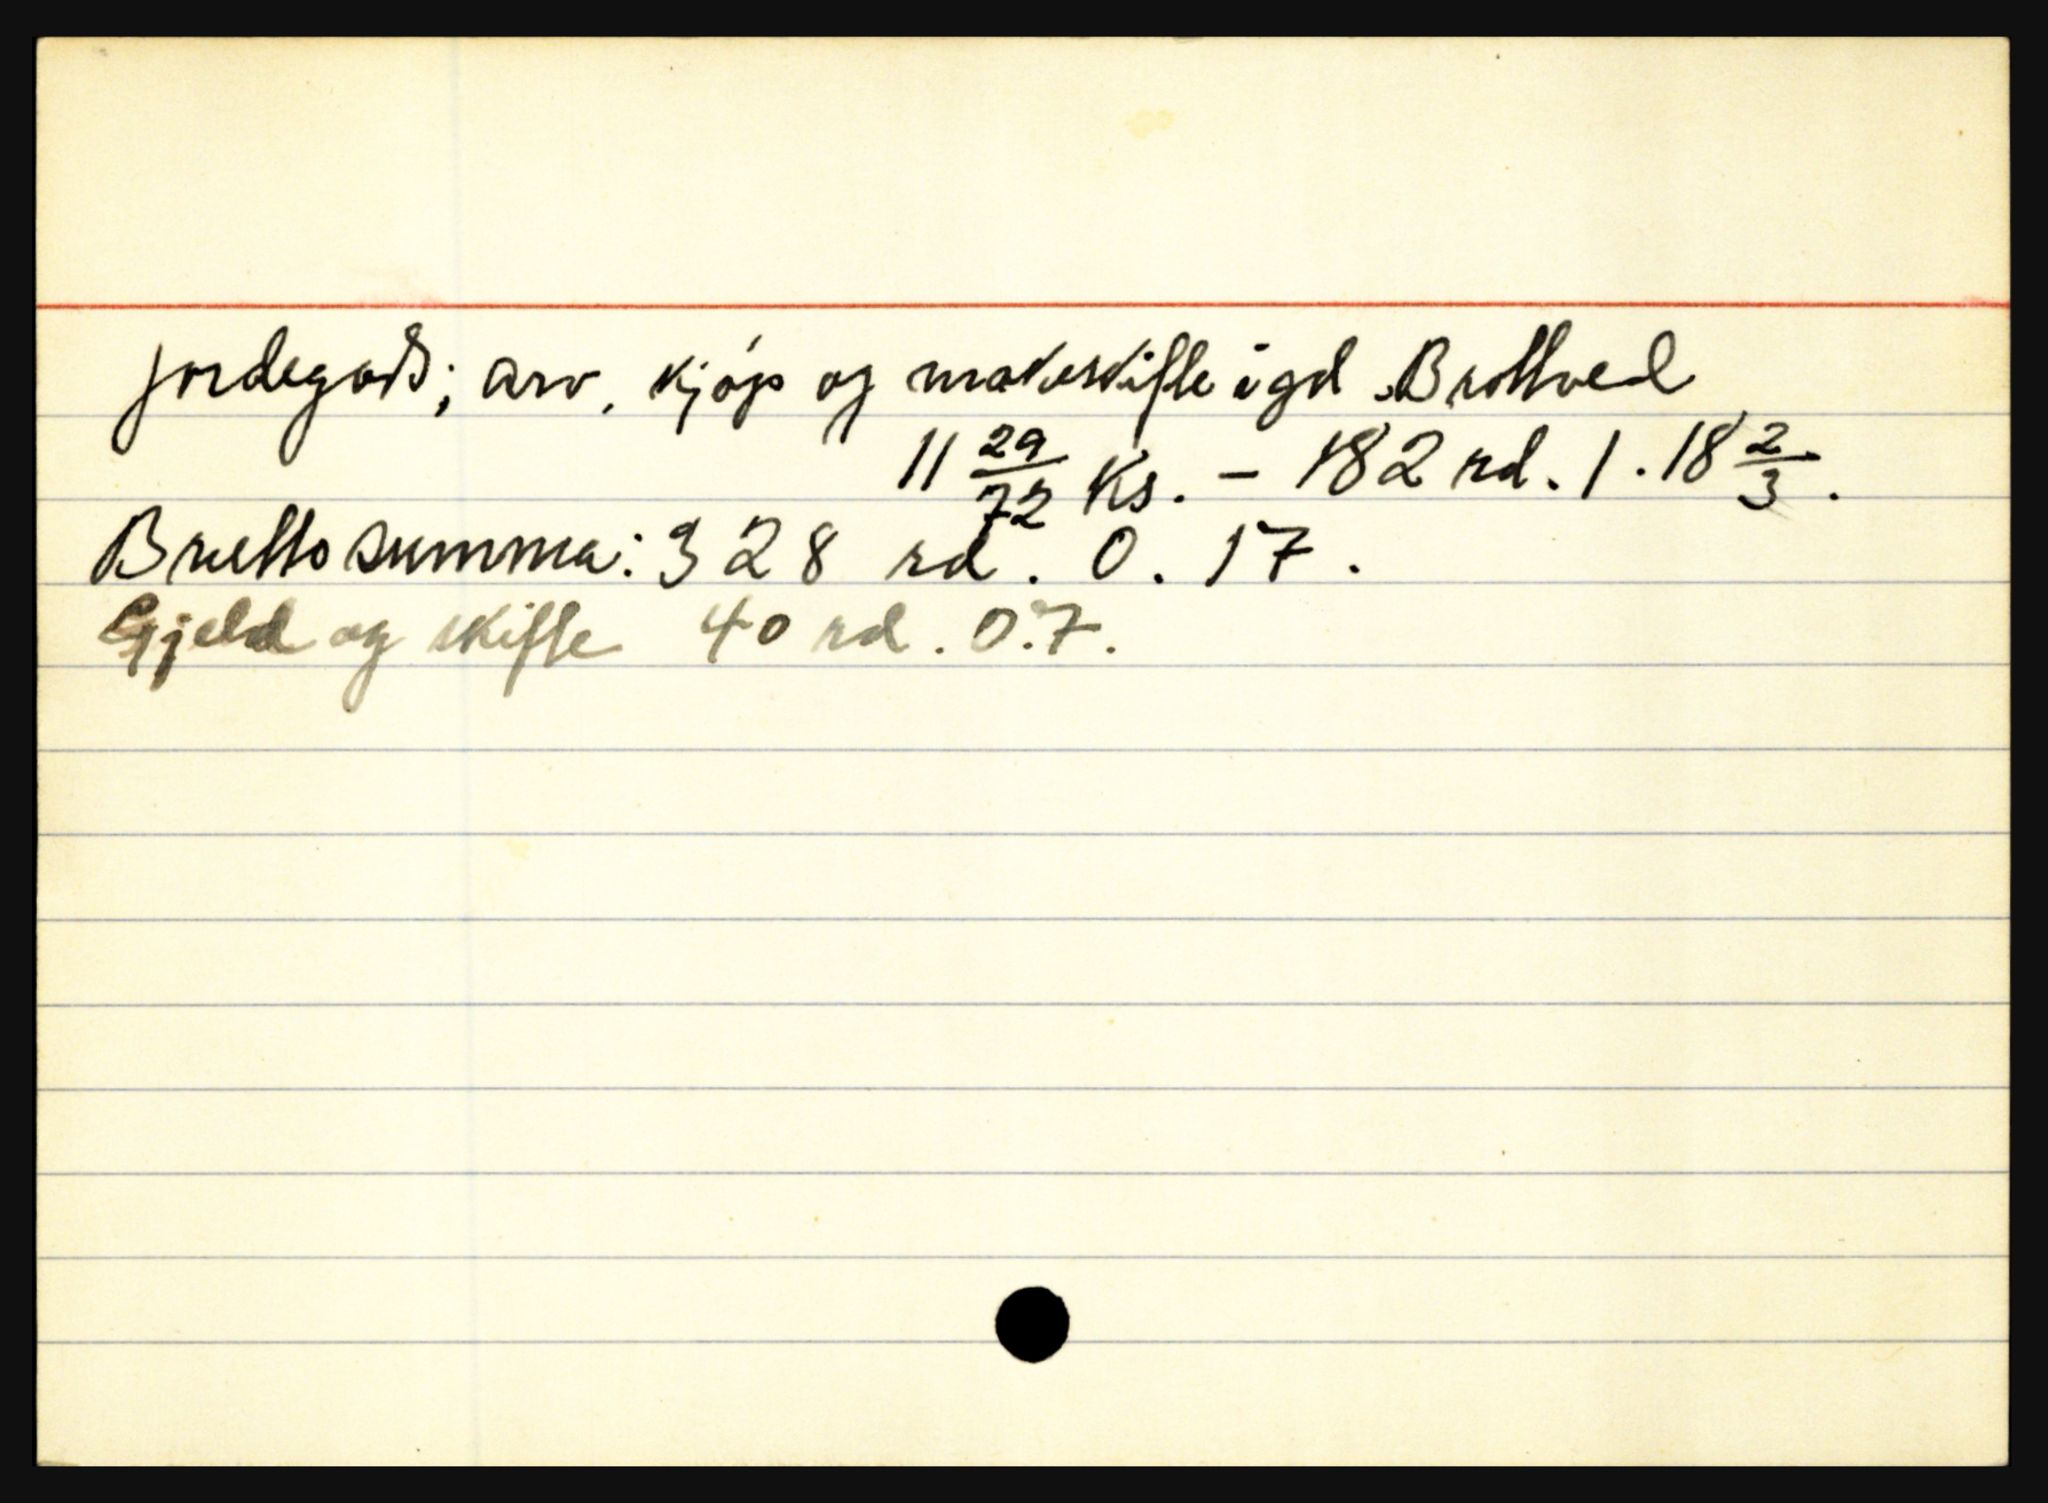 jordegods; arv, kjøp og makeskifte i gd. Brottved
11 29/72 Ks. – 182 rd. 1. 18 2/3.
Bruttosumma: 328 rd. 0. 17.
Gjeld og skifte 40 rd. 0. 7.